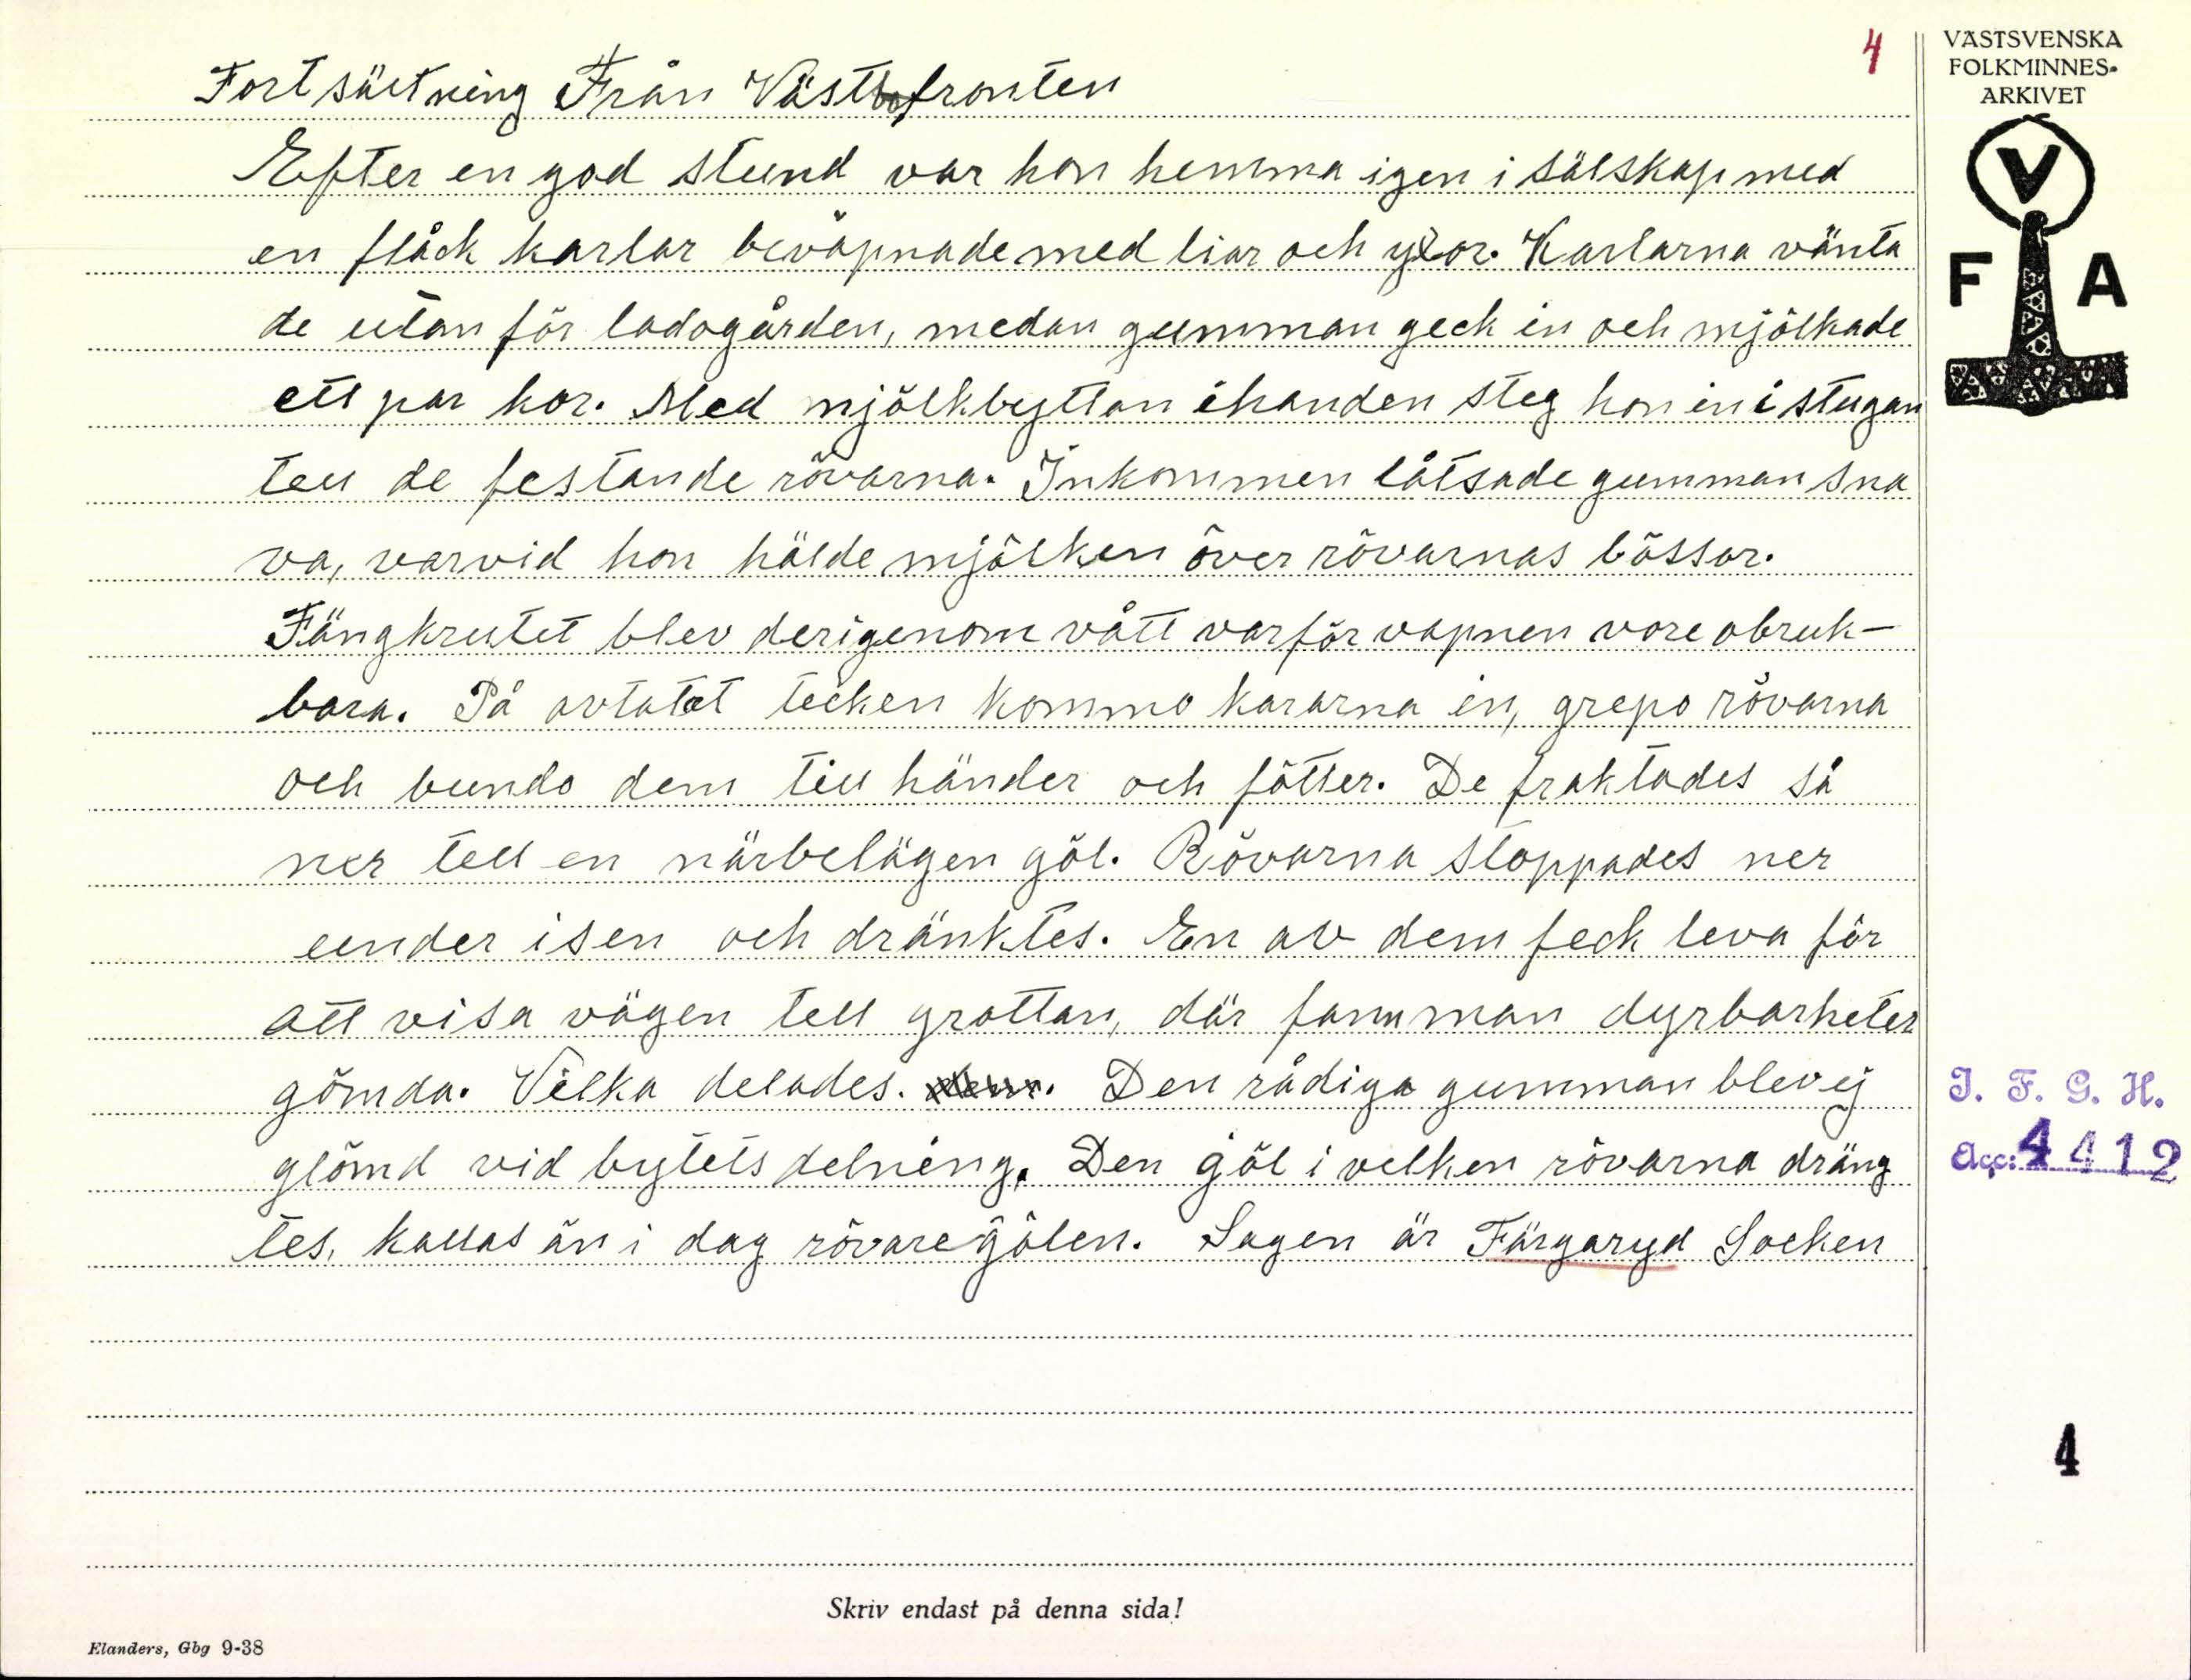 4
VÄSTSVENSKA
FOLKMINNES-
ARKIVET
V
F A
Fortsättning Från Västbofronten
Efter en god stund var hon hemma igen i sälskap med
en flåck karlar beväpnade med liar och yxor. Karlarna vänta
de utan för ladogården, medan gumman geck in och mjölkade
ett par kor. Med mjölkbyttan i handen steg hon in i stugan
tell de festande rövarna. Inkommen låtsade gumman sna
va, varvid hon hälde mjölken över rövarnas bössor.
Fängkrutet blev derigenom vått varför vapnen vore obruk-
bara. På avtalat tecken kommo kararna in, grepo rövarna
och bundo dem till händer och fötter. De fraktades så
ner tell en närbelägen göl. Rövarna stoppades ner
under isen och dränktes. En av dem feck leva för
att visa vägen tell grottan, där fann man dyrbarheter
gömda. Vilka delades. Den rådiga gumman blev ej
glömd vid bytets delning. Den göl i velken rövarna dräng
tes, kallas än i dag rövaregölen. Sagen är Färgaryd Socken
I. F. G. H.
Acc: 4412
4
Skriv endast på denna sida!
Elanders, Gbg 9-38